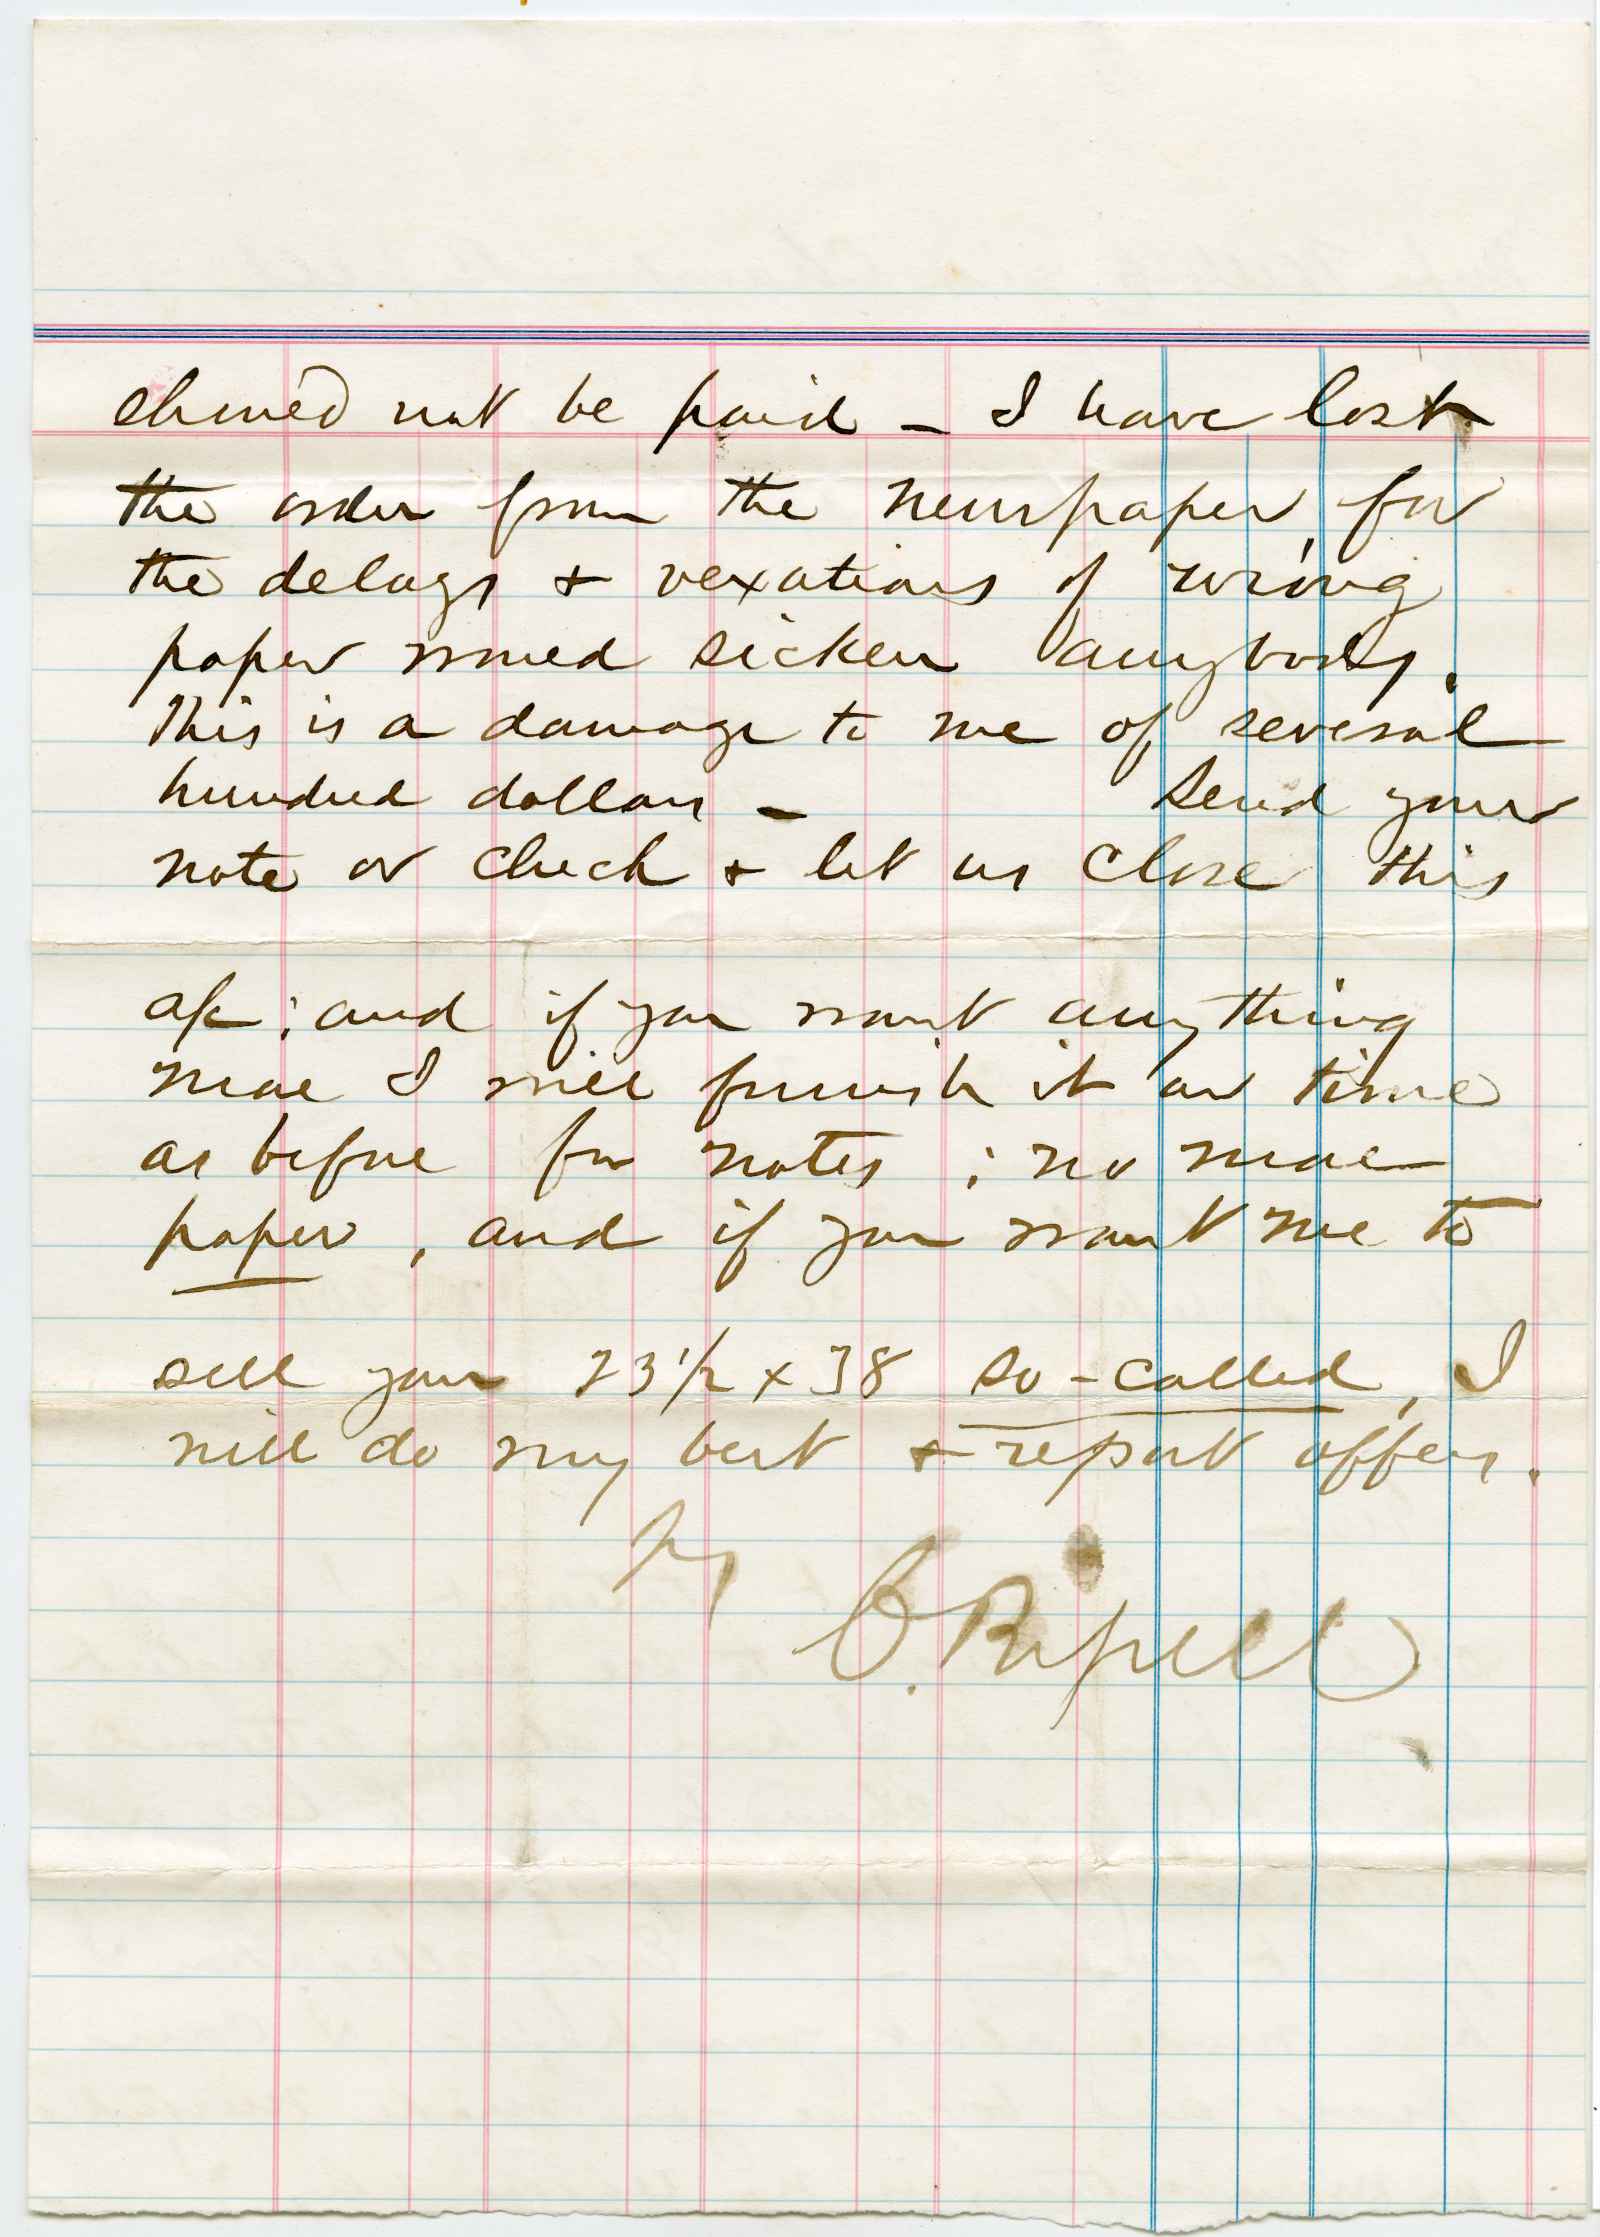 should not be paid — I have lost
the order from the newspaper, for
the delays & vexations of wrong
paper would sicken anybody.
This is a damage to me of several
hundred dollars — Send your
note or check & let us close this
a/c ; and if you want anything
more I will furnish it on time
as before for notes ; no more
paper, and if you want me to
sell your 23 1/2 x 38 so-called, I
will do my best & report offers.